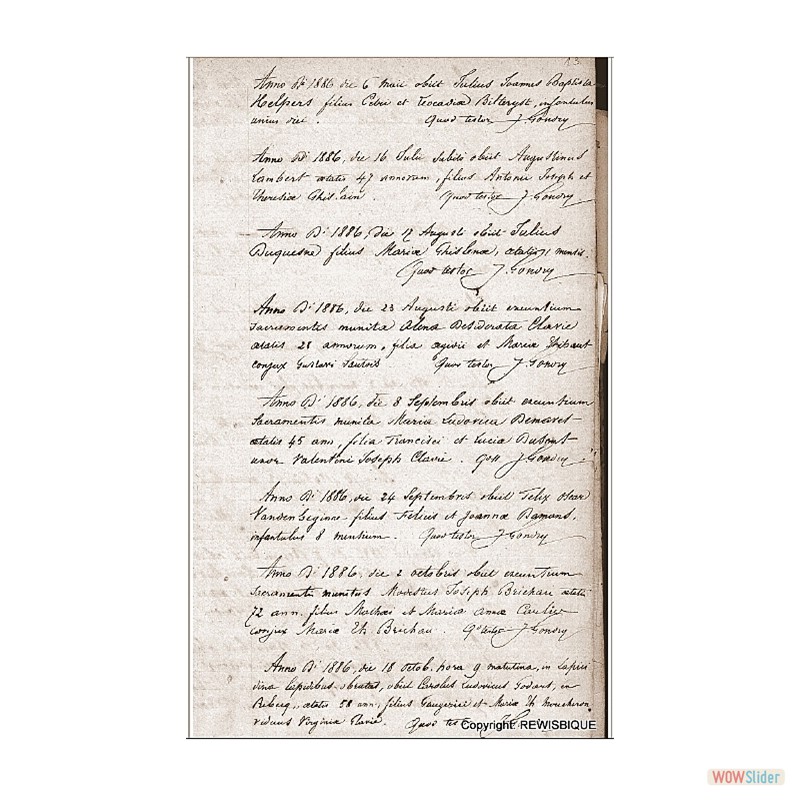 13
Anno Di 1886 die 6 maii obiit Julius Joannes Baptista
Helpers filius Celsi et Leocadiæ Bilteryst, infantulus
unius diei. Quod testor J. Gondry
Anno Di 1886, die 16 Julii subito obiit Augustinus
Lambert ætatis 47 annorum, filius Antonii Joseph et
Theresiæ Ghislain. Quod testor J. Gondry
Anno Di 1886, die 17 Augusti obiit Julius
Duquesne filius Mariæ Ghislenæ, ætatis mensis.
Quod testor J. Gondry
Anno Di 1886, die 23 Augusti obiit exeuntium
Sacramentis munita Desiderata Clavie
ætatis 28 annorum, filia et Maria
conjux Gustavi Quod testor J. Gondry
Anno Di 1886, die 8 Septembris obiit exeuntium
Sacramentis munita Maria Ludovica
ætatis 45 ann, filia Francisci et Lucia Dupont
uxor Valentini Joseph Clavie. J. Gondry
Anno Di 1886, die 24 Septembris obiit Felix Oscar
Vanden filius Felicis et Joannæ
infantulus 8 mensium. Quod testor J. Gondry
Anno Di 1886, die 2 octobris obiit exeuntium
Sacramentis munitus Modestus Joseph Brichau ætatis
72 ann. filius Mathæi et Mariæ Annæ
conjux Mariæ Th Brichau. J. Gondry
Anno Di 1886, die 18 octob. hora 9 matutina, in
lapidibus obrutus, obiit Carolus Ludovicus Godart, in
Rebecq, ætatis 58 ann, filius et Mariæ Th
viduus Virginiæ Quod testor
Copyright: REWISBIQUE
WOWSlider